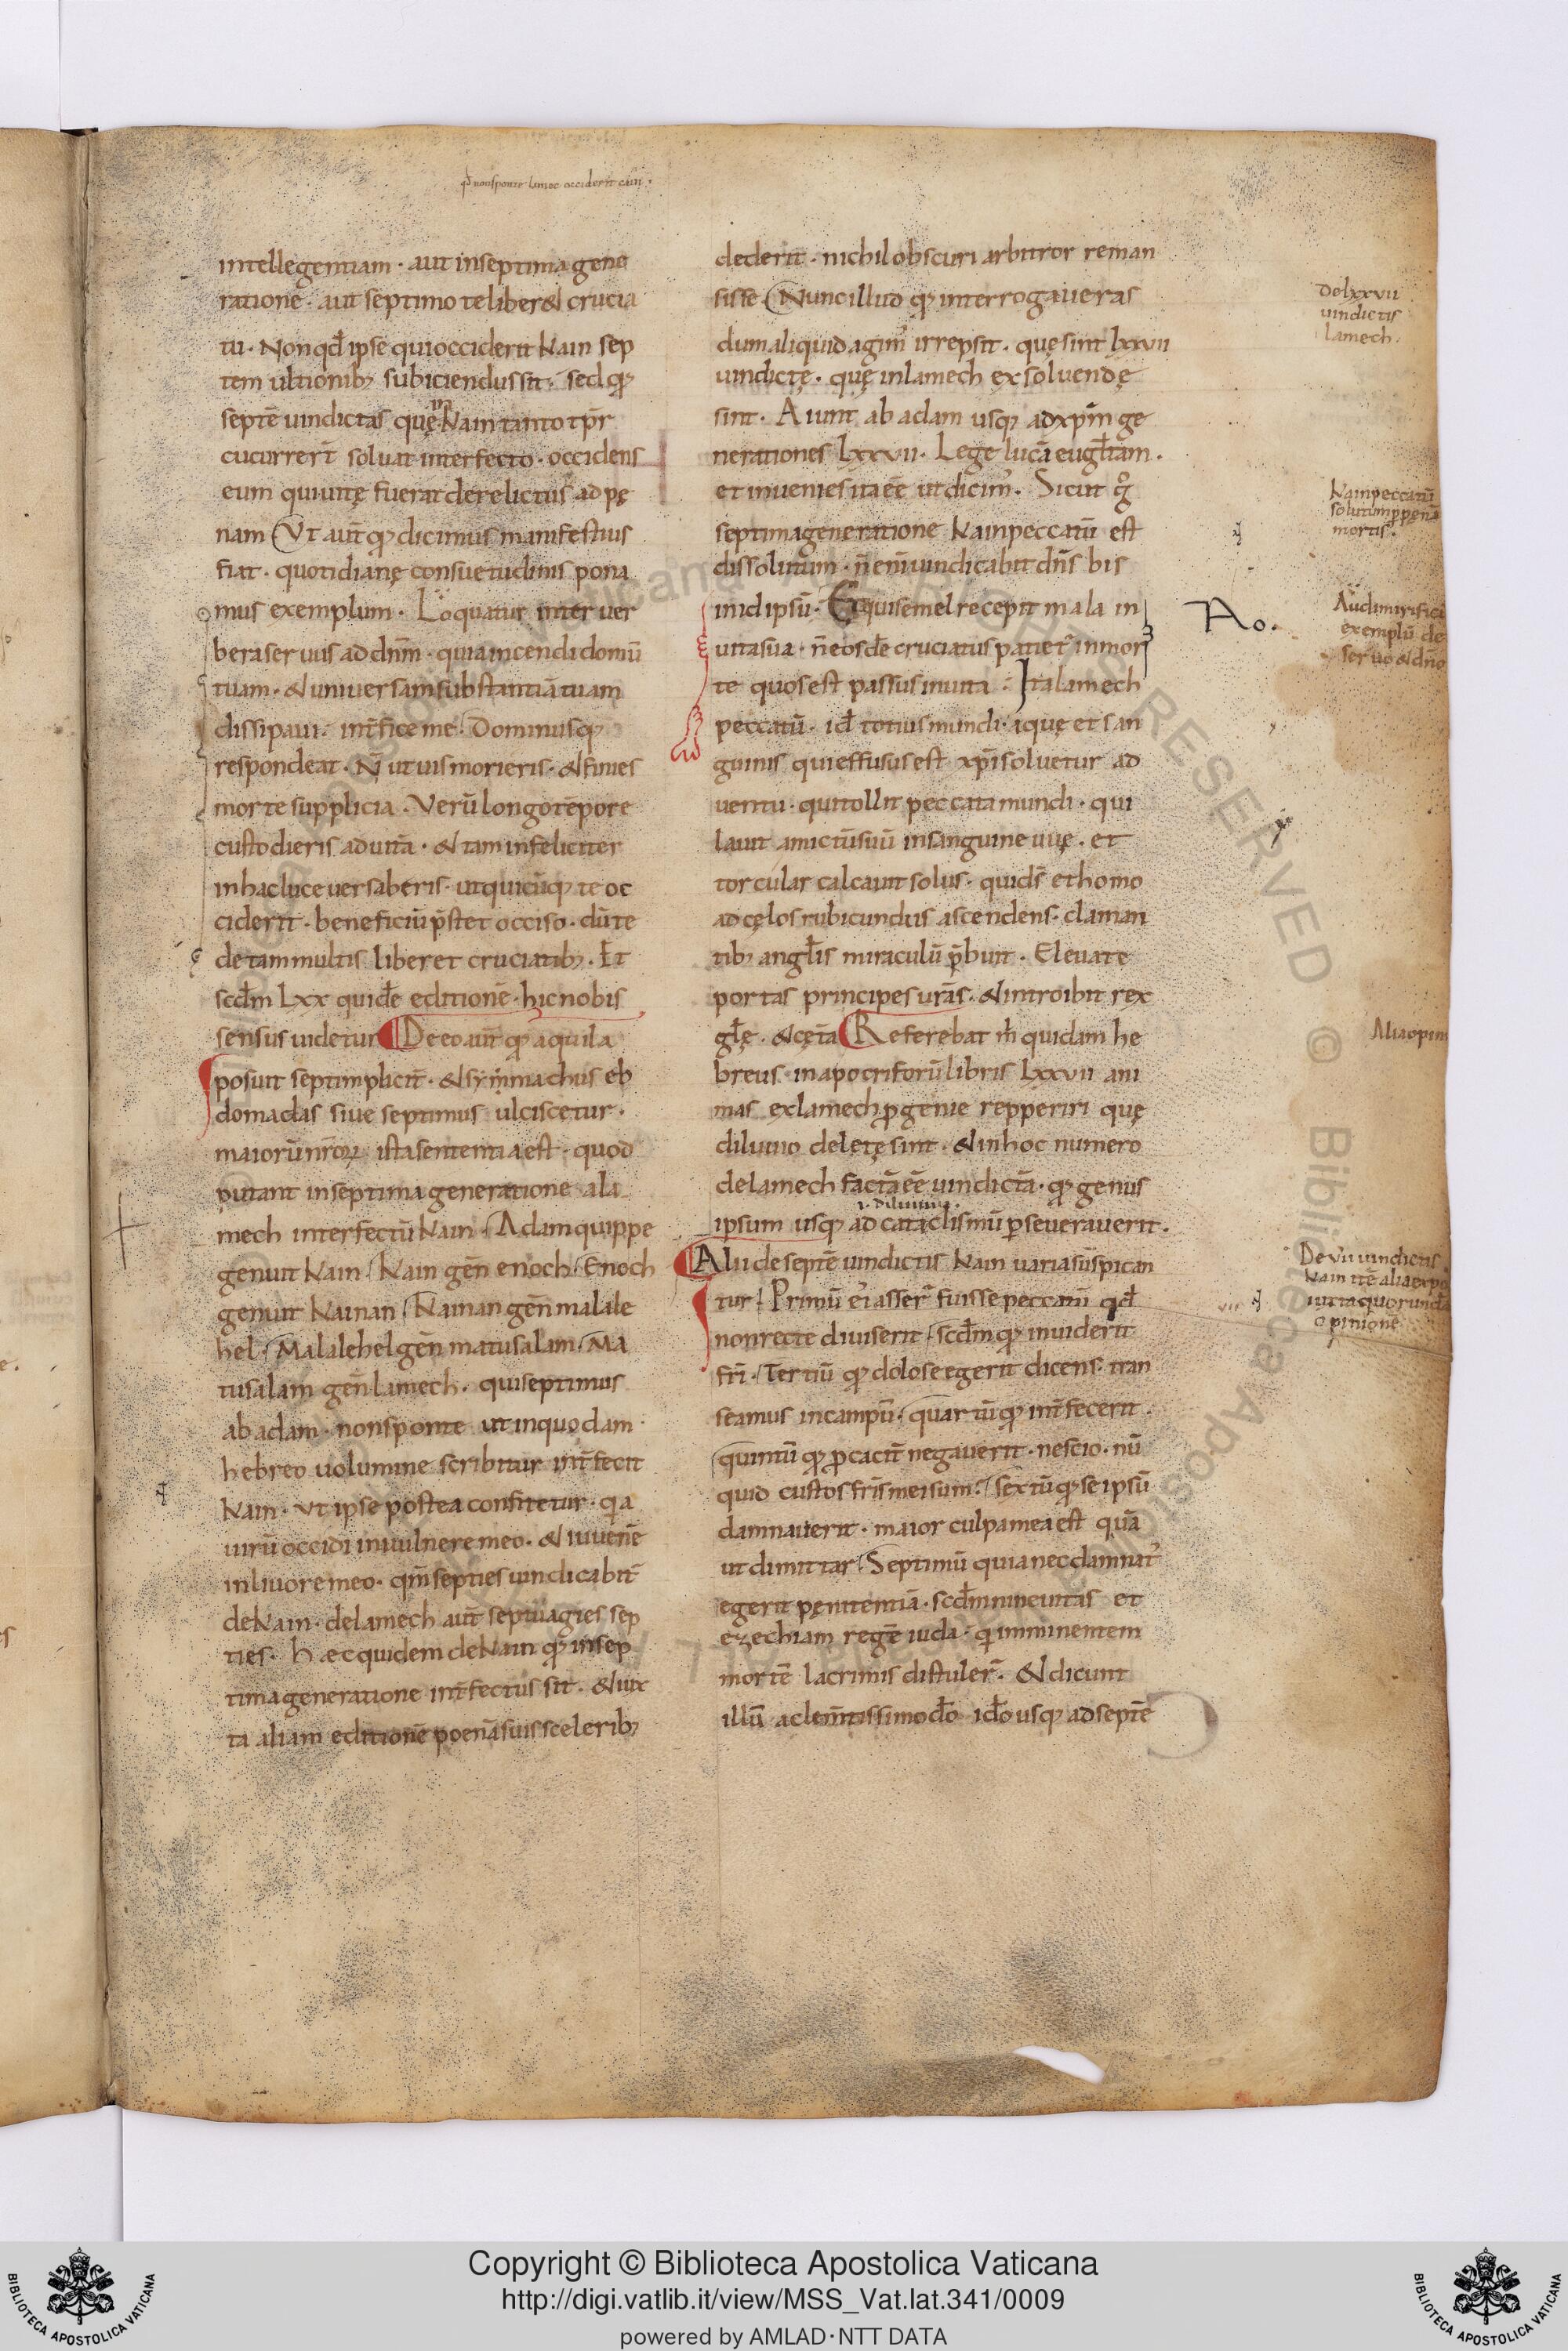 qd nonsponte lamec occiderit cain.
intellegentiam · aut inseptima gene
ratione · aut septimo te liber& crucia
tu · Non qd̄ ipse qui occiderit Kain sep
tem ultionib; subiciendus sit · sed q;
septē uindictas quę in Kain tanto tp̄r
cucurrer̄t soluat interfecto · occidens
eum qui uitę fuerat derelictus ad pę
nam Vt aut̄ q; dicimus manifestius
fiat · quotidianę consuetudinis pona
mus exemplum · Loquatur inter uer
bera seruus ad dn̄m · quia incendi domū
tuam · & uniuersam substantiā tuam
dissipaui · int̄fice me · Dominusq;
respondeat · N̄ ut uis morieris · & finies
morte supplicia · Verū longo tēpore
custodieris ad uitā · & tam infeliciter
in hac luce uersaberis · ut quicūq; te oc
ciderit · beneficiū p̄stet occiso · dū te
de tam multis liberet cruciatib; · Et
scd̄m Lxx quidē editionē · hic nobis
sensus uidetur De eo aut̄ q; aquila
posuit septimpliciт̄ · & symmachus eb
domadas siue septimus ulciscetur ·
maiorū nr̄oꝝ ista sententia est · quod
putant in septima generatione a la
mech interfectū Kain · Adam quippe
genuit Kain · Kain gen̄ enoch · Enoch
genuit Kainan · Kainan gen̄ malale
hel · Malalehel gen̄ matusalam · Ma
tusalam gen̄ lamech · qui septimus
ab adam · non sponte ut in quodam
hebreo uolumine scribitur int̄fecit
Kain · Vt ipse postea confitetur · qa
uirū occidi in uulnere meo · & iuuenē
in liuore meo · qm̄ septies uindicabit̄
de Kain · de lamech aut̄ septuagies sep
ties · Haec quidem de Kain q; in sep
tima generatione int̄fectus sit · & iux
ta aliam editionē poenā suis sceleribꝫ
dederit · nichil obscuri arbitror reman
sisse Nunc illud q; interrogaueras
dum aliquid agim' irrepsit · quę sint lxxvii
uindictę · quę in lamech exsoluendę
sint · Aiunt ab adam usq; ad xpm̄ ge
nerationes Lxxvii · Lege lucā eugl̄tam ·
et inuenies ita eē ut dicim' · Sicut g̊
septima generatione Kain peccatū est
dissolutum · n̄ enī uindicabit dn̄s bis
in id ipsū · Et qui semel recepit mala in
uita sua · n̄ eosdē cruciatus patiet' in mor
te quos est passus in uita · Ita lamech
peccatū · id̄ totius mundi · atquę et san
guinis qui effusus est xpi soluetur ad
uentu · qui tollit peccata mundi · qui
lauit amictū suū in sanguine uuę · et
torcular calcauit solus · qui ds̄ et homo
ad cęlos rubicundus ascendens · claman
tib; angl̄is miraculū p̄buit · Eleuate
portas principes urās · & introibit rex
gl̄ę · & cęta Referebat m̄ quidam he
breus · in apocriforū libris Lxxvii ani
mas ex lamech progenie repperiri quę
diluuio deletę sint · & in hoc numero
de lamech factā eē uindictā · q; genus
.i. diluuiū.
ipsum usq; ad cataclismū perseuerauerit ·
Alii de septē uindictis Kain uaria suspican
tur · Primū ei' asser̄ fuisse peccatū qd̄
non recte diuiserit · scd̄m q; inuiderit
fri · Tertiū q; dolose egerit dicens · tran
seamus in campū · quartū q; int̄fecerit ·
quintū q; procaciт̄ negauerit · nescio · nū
quid custos fris mei sum · sextū q; se ipsū
damnauerit · maior culpa mea est quā
ut dimittar · Septimū quia nec damnat'
egerit pęnitentiā · scd̄m nineuitas et
ezechiam regē iuda · q imminentem
mortē lacrimis distuler̄ · & dicunt
illū a clem̄tissimo dō idō usq; ad septē
De lxxvii
uindictis
lamech.
Kain peccatū
solutum p pęnā
mortis.
Ao.
Audi mirifici
exemplū de
seruo & dn̄o
Alia opin
De vii uindictis
Kain itē alia expo
iuxta quorundā
opinione
Copyright © Biblioteca Apostolica Vaticana
http://digi.vatlib.it/view/MSS_Vat.lat.341/0009
powered by AMLAD·NTT DATA
BIBLIOTECA APOSTOLICA VATICANA
BIBLIOTECA APOSTOLICA VATICANA